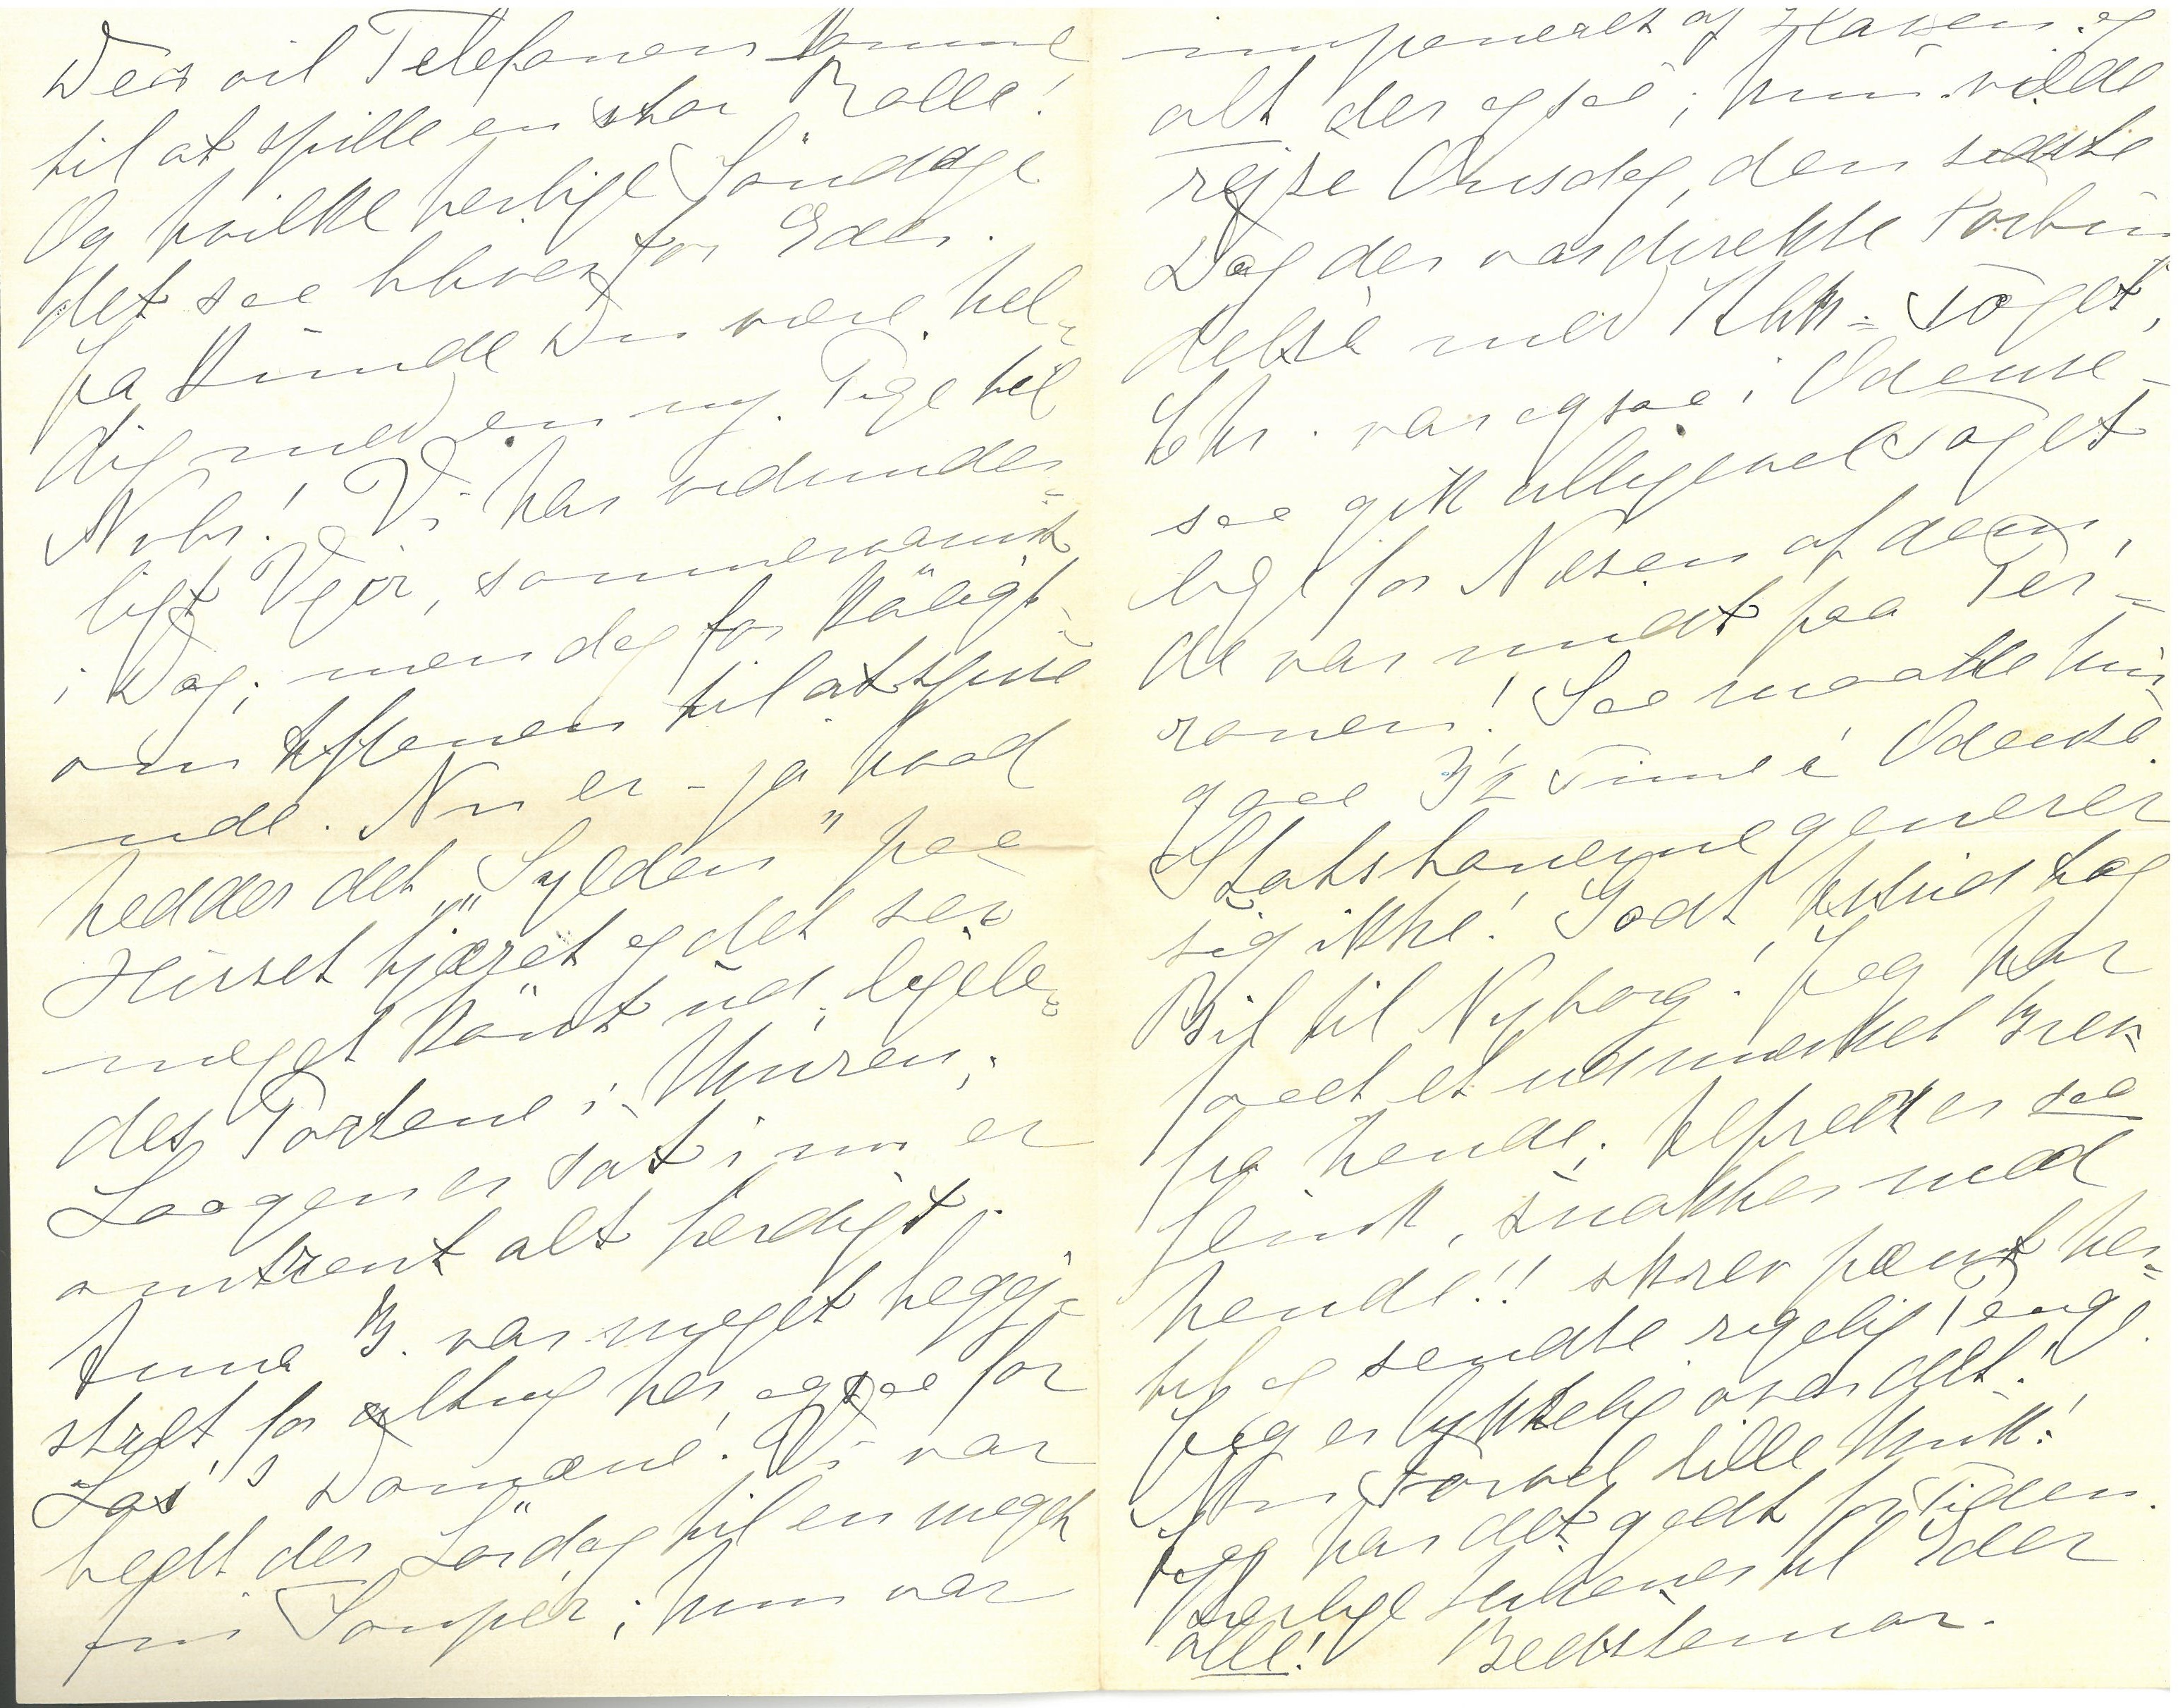 Der vil Telefonen komme
til at spille en stor Rolle!
Og hvilke herlige Søndage
det saa bliver for Eder.
Ja kunde Du være hel-
dig med en ny Pige til
Nvbr.! Vi har vidunder-
ligt Vejr, sommervarmt
i Dag; men dog for køligt
om Aftenen til at spise
ude. Nu er - ja hvad
hedder det "Sylden" paa
Huset tjæret og det ser
meget kønt ud, ligele-
des Portene i Muren;
Laagen er sat i nu er
omtrent alt færdigt.
Anna B. var meget begej-
stret for alting her, ogsaa for
Las's Domæne! Vi var
bedt der Lørdag til en meget
fin Souper; hun var
imponeret af Haven og
alt der ogsaa; hun vilde
rejse Onsdag, den sidste
Dag der var direkte Forbin
delse med Kbh-Toget,
Chr. var ogsaa i Odense -
saa gik alligevel Toget
lige for Næsen af dem,
de var midt paa Per-
ronen! Saa maatte hun
gaa 3½ Time i Odense.
Statsbanerne generer
sig ikke! Godt hun tog
Bil til Nyborg! Jeg har
faaet et udmærket Brev
fra hende; Alfred er saa
flink, snakker med
hende!! skrev pænt her-
til og sendte rigelig Penge.
Jeg er lykkelig over det!
Nu Farvel lille Muk!
Jeg har det godt for Tiden.
Kærlige Hilsener til Eder
alle! Bedstemor.